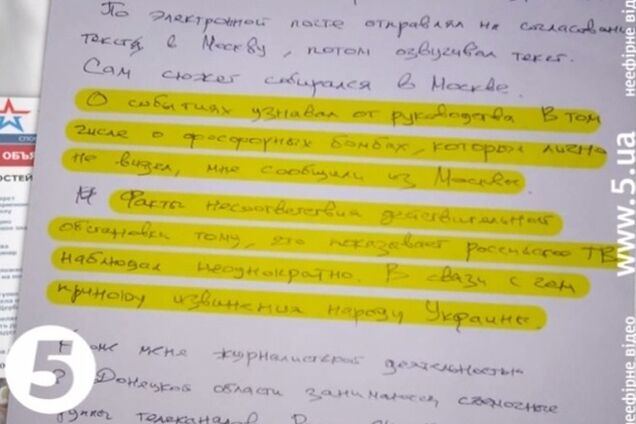 По электронной посте отправлял на согласование
тексты в Москву, потом озвучивал текст.
Сам сюжет собирался в Москве.
О событиях узнавал от руководства. В том
числе о фосфорных бомбах, которых лично
не видел, мне сообщили из Москвы.
Факты несоответствия действительной
обстановки тому, что показывает российское ТВ
наблюдал неоднократно. В связи с чем
приношу извинения народу Украины.
меня журналистской деятельностью
Донецкой области занимались съемочные
группы телеканалов
ОБЪЯ
5
www.5.ua
неефірне відео
неефірне відео